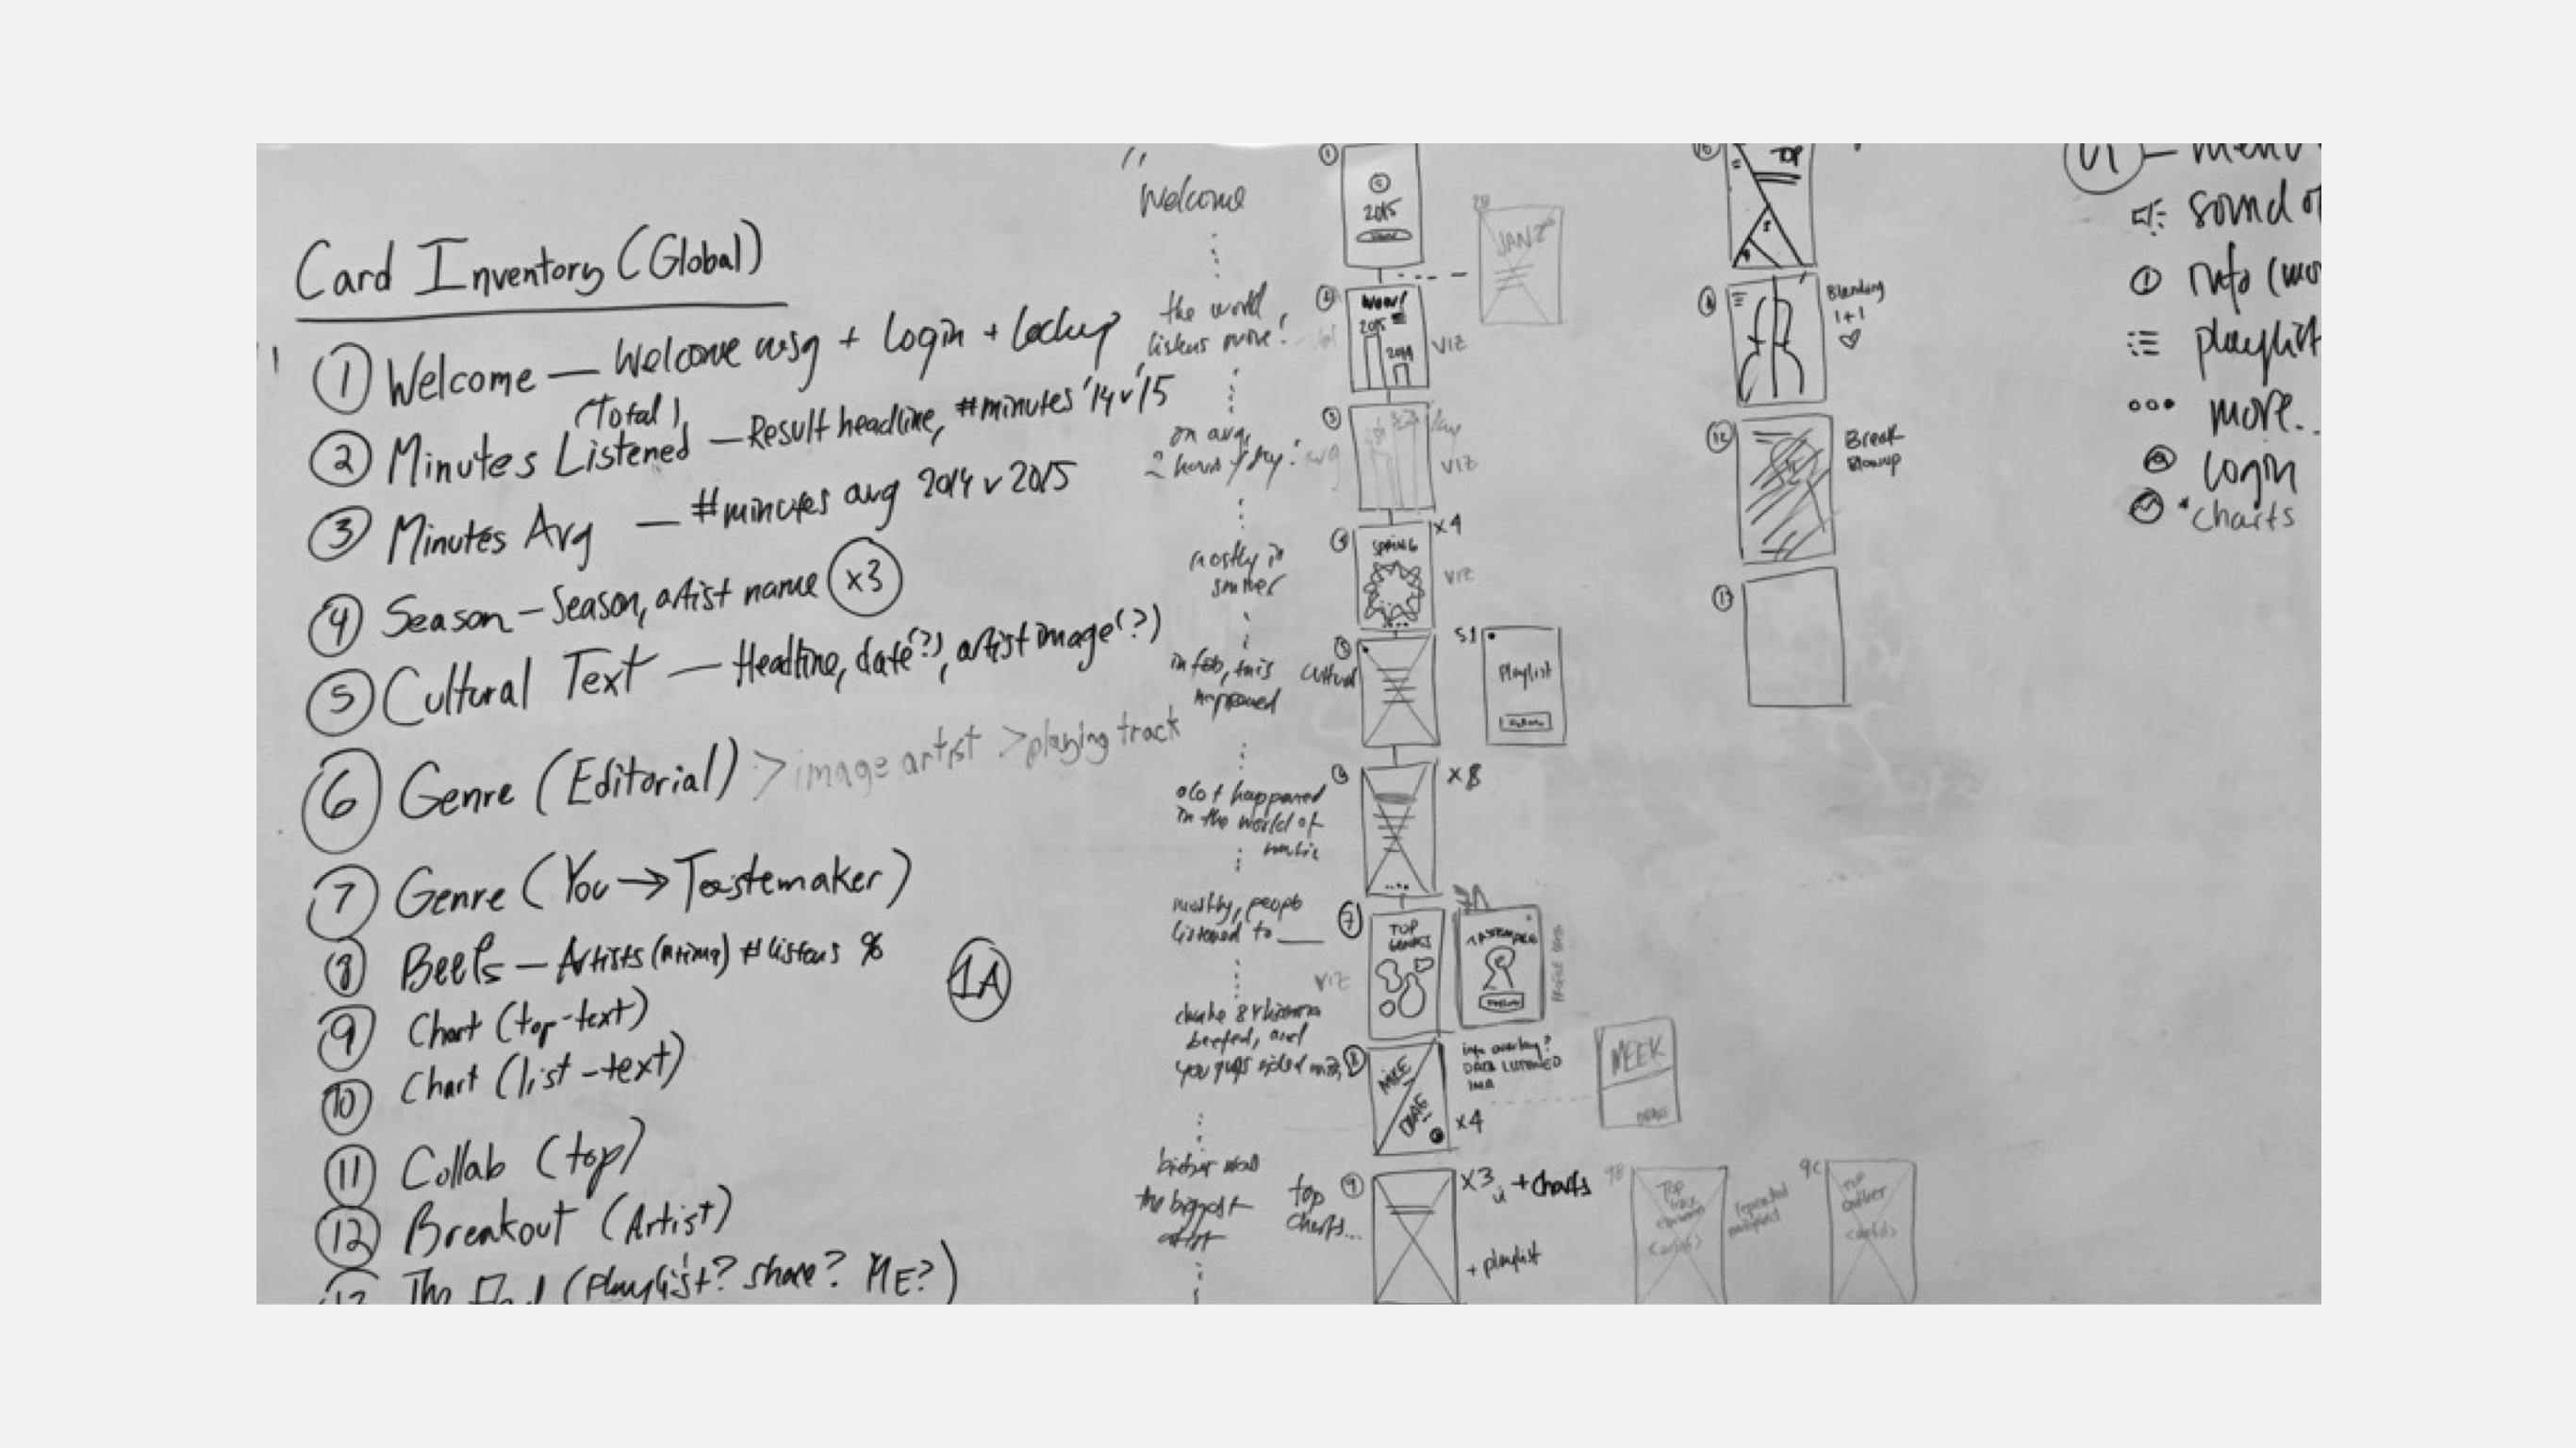 Card Inventory (Global)
1 Welcome — Welcome msg + Login + Lockup
(Total)
2 Minutes Listened — Result headline, #minutes '14 v '15
3 Minutes Avg — #minutes avg 2014 v 2015
4 Season — Season, artist name x3
5 Cultural Text — Headline, date(?), artist image(?)
6 Genre (Editorial) > image artist > playing track
7 Genre (You → Tastemaker)
8 Beefs — Artists #listens %
9 Chart (top-text)
10 Chart (list-text)
11 Collab (top)
12 Breakout (Artist)
(Playlist? share? ME?)
1A
"Welcome
the world
listens more!
on avg,
2 hours /day!
mostly in
in feb, this
happened
alot happened
in the world of
mostly, people
listened to ___
beefed, and
you guys sided
the biggest
artist
1
2015
2
2015
2014
VIZ
JAN
3
VIZ
SPRING
x4
VIZ
5
Cultural
S1
Playlist
x8
7
TOP
VIZ
8
DRAKE
DATA LISTENED
x4
MEEK
DRAKE
top
charts...
9
x3
+ charts
+ playlist
9B
Top
9C
TOP
TOP
Blending
1+1
12
Break
UI — menu
sound
info
playlist
more..
login
*charts